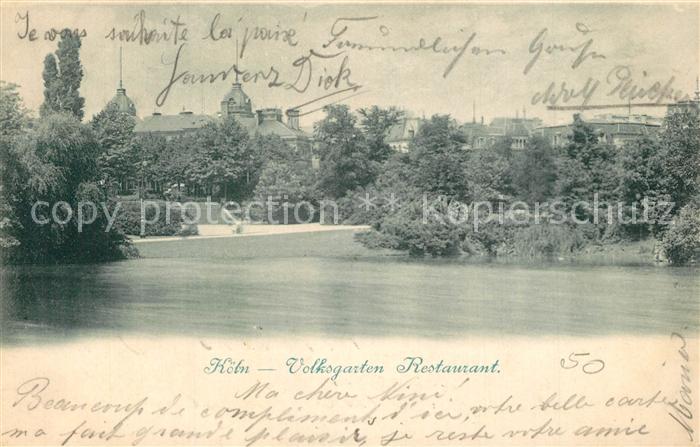 Je vous souhaite la paix
Freundlichen Gruss
Lawrenz Dick
Adolf
copyright protection kopierschutz
Köln — Volksgarten Restaurant.
50
Ma chère Nini!
Beaucoup de compliments d'ici, votre belle carte
m'a fait grande plaisir, je reste votre amie